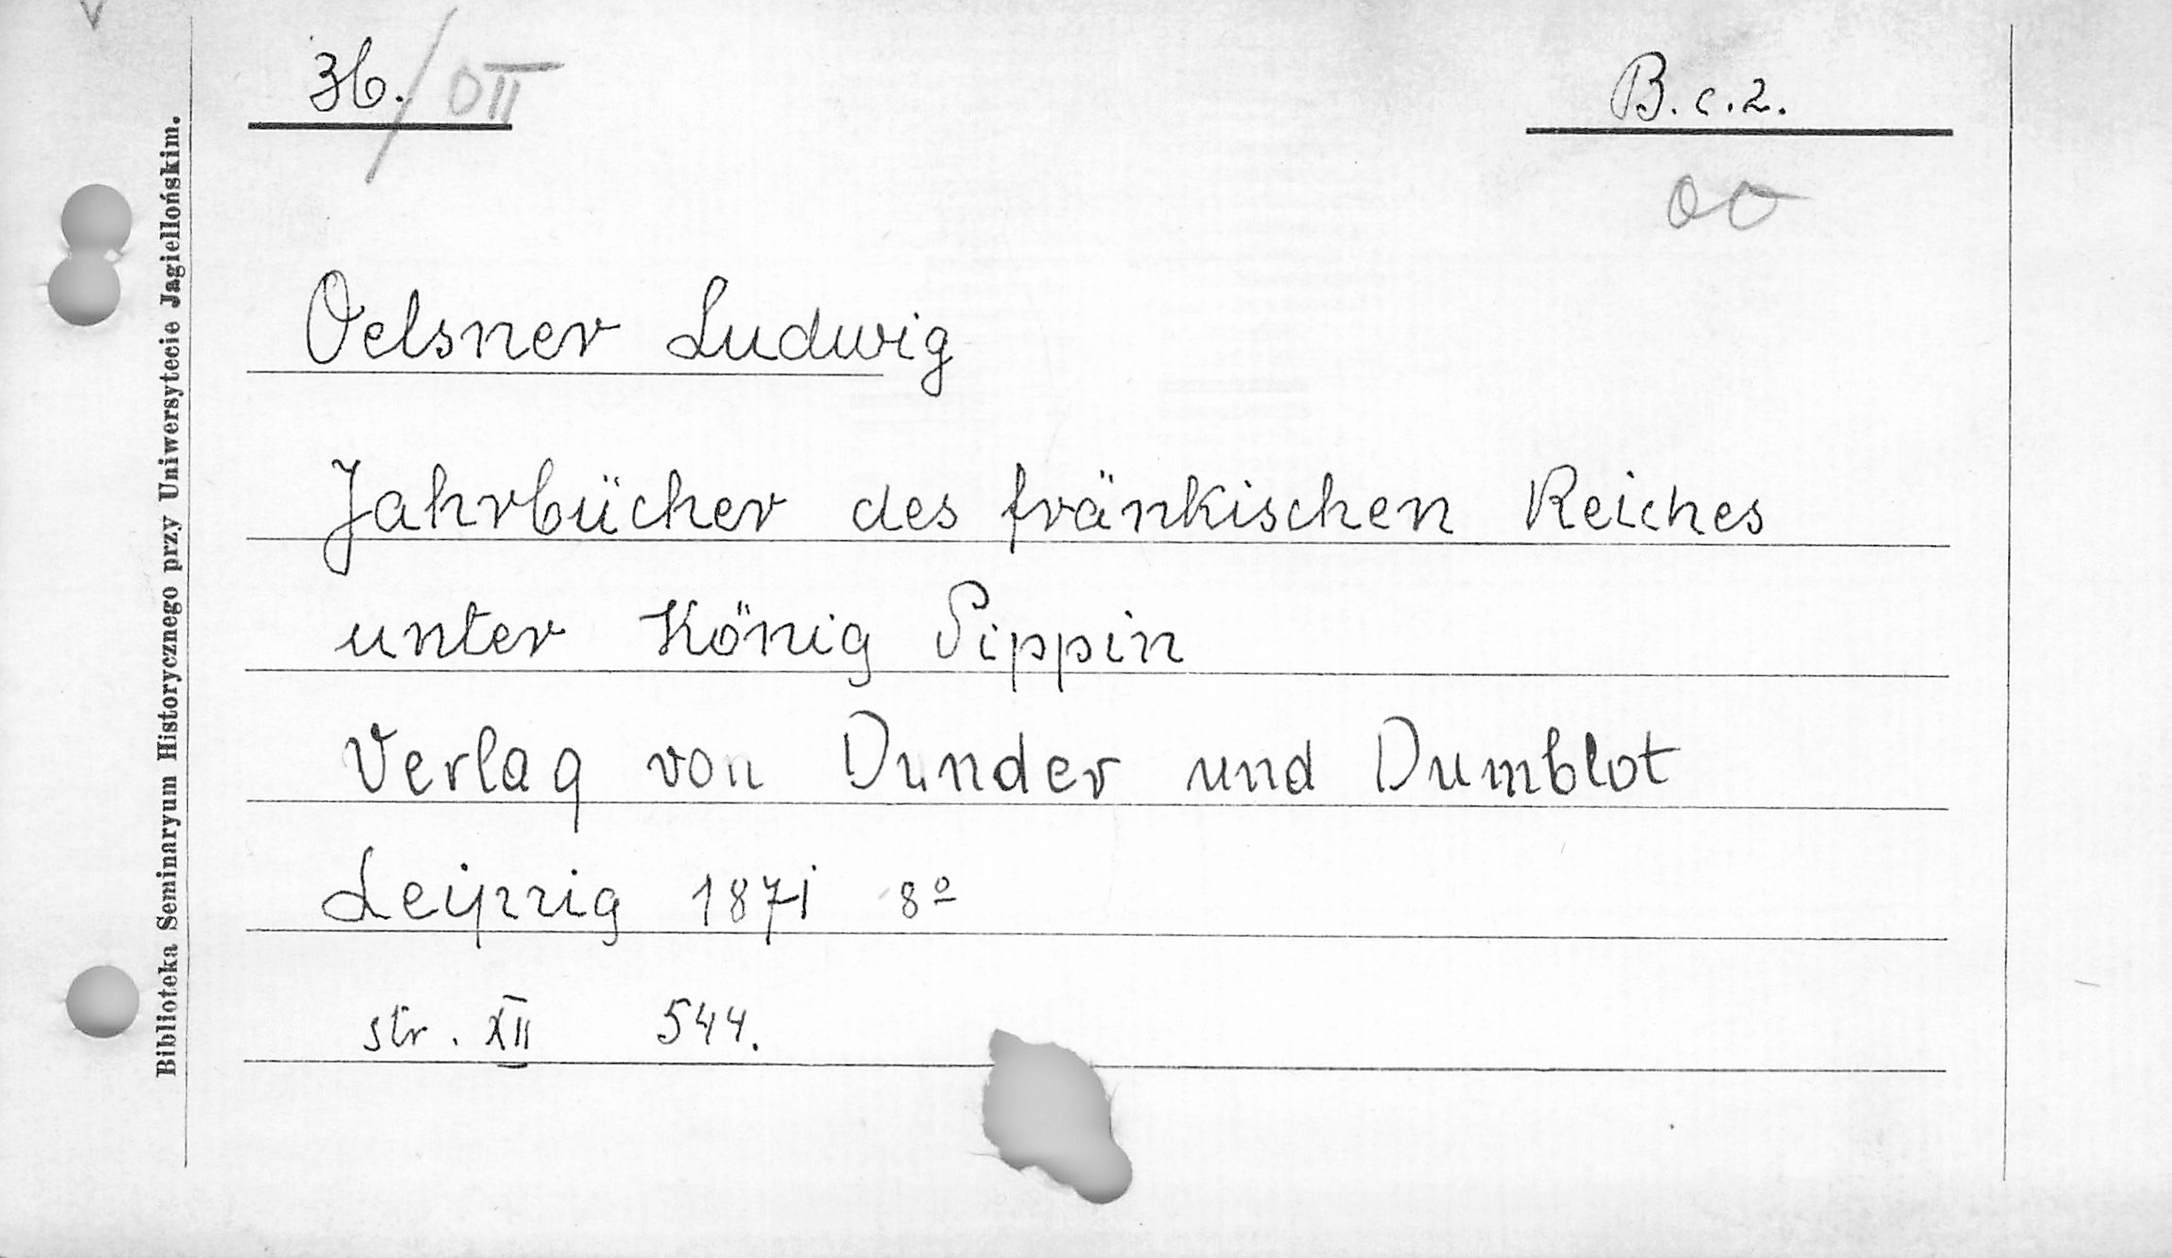 36./OII
B.c.2.
oo
Oelsner Ludwig
Jahrbücher des fränkischen Reiches
unter König Pippin
Verlag von Dunder und Dumblot
Leipzig 1871 8º
str. XII 544.
Biblioteka Seminaryum Historycznego przy Uniwersytecie Jagiellońskim.